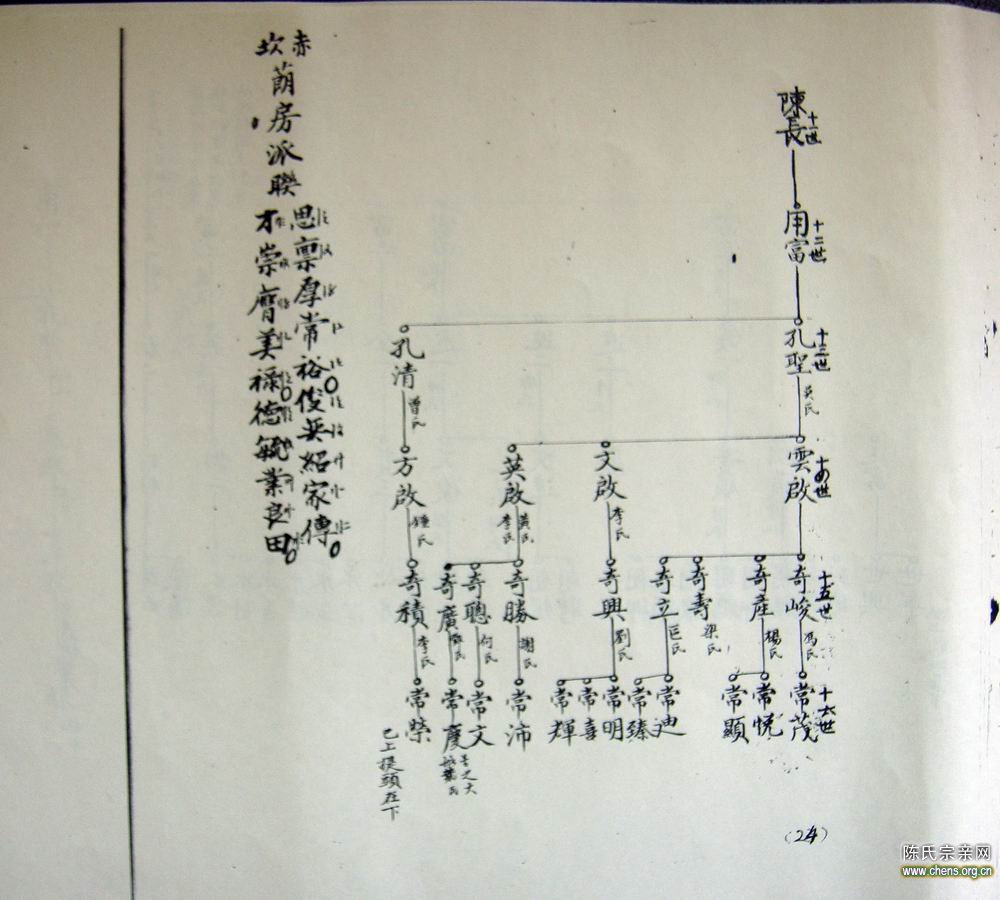 陳長
十一世
用富
十二世
孔聖
十三世
吳氏
孔清
曾氏
雲啟
十四世
文啟
李氏
英啟
黃氏
李氏
方啟
鍾氏
奇峻
十五世
馮氏
奇產
楊氏
奇壽
梁氏
奇立
巨氏
奇興
劉氏
奇勝
謝氏
奇聰
何氏
奇廣
氏
奇積
李氏
常茂
十六世
常悅
常顯
常迪
常臻
常明
常喜
常輝
常沛
常文
常慶
常榮
已上提頭在下
赤坎
萠房派聯
思稟厚常裕俊英紹家傳
才崇膺美祿德毓業良田
(24)
陈氏宗亲网
www.chens.org.cn